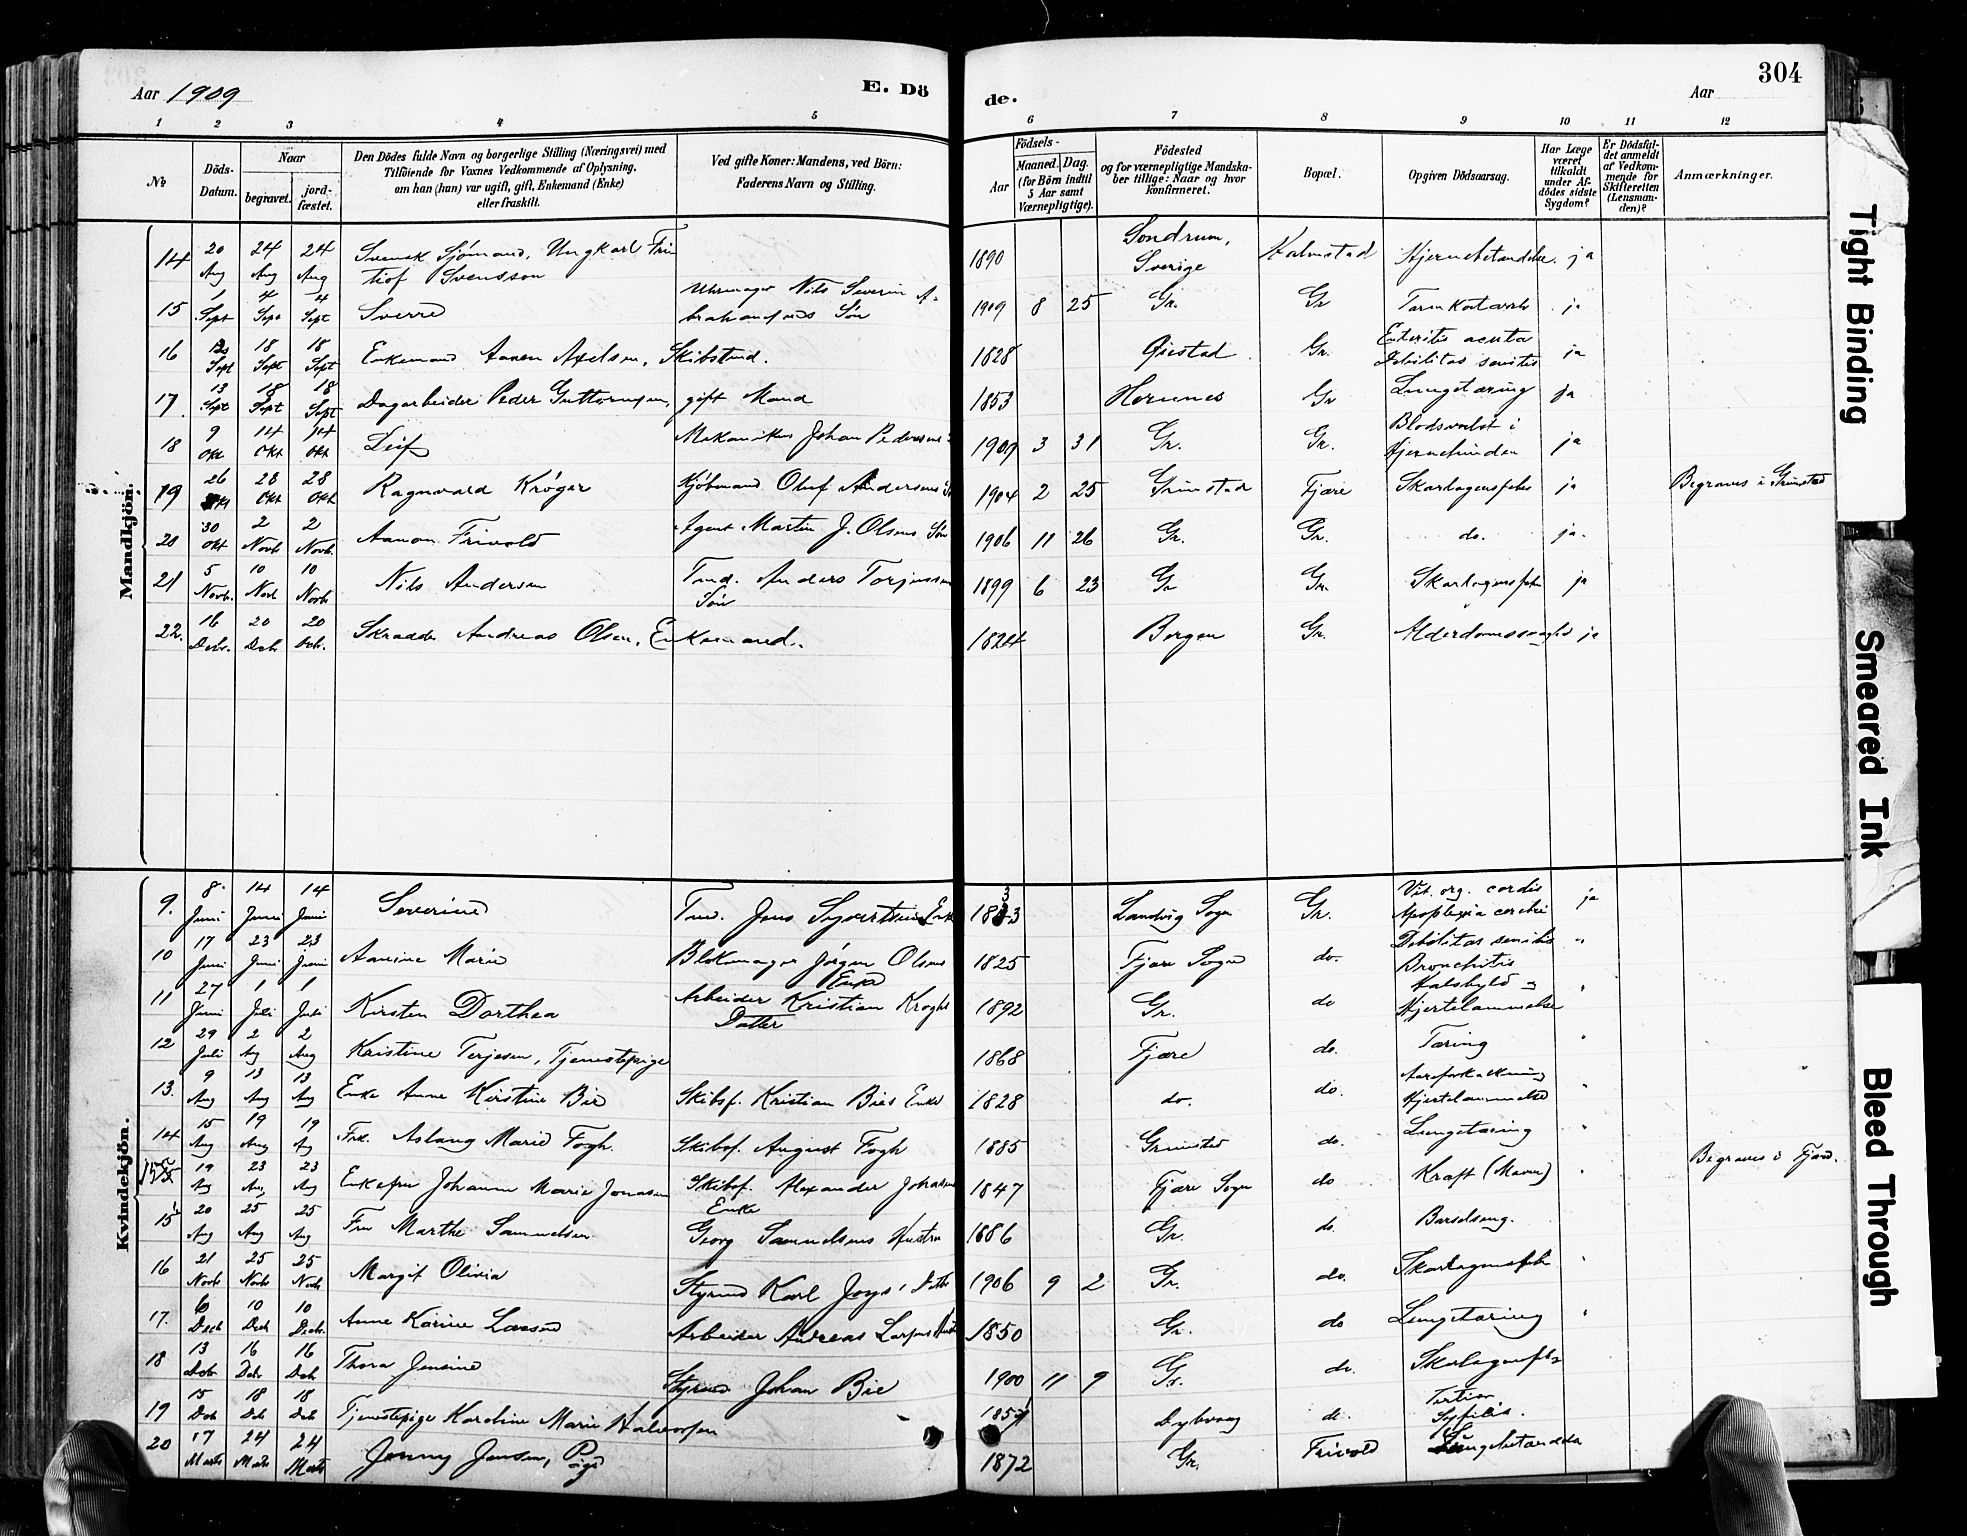 304
Aar 1909
E. Dö
de.
Aar
1 2 3 4 5 6 7 8 9 10 11 12
No
Döds-Datum.
Naar
begravet.
jord-fæstet.
Den Dödes fulde Navn og borgerlige Stilling (Næringsvei) med
Tilföiende for Voxnes Vedkommende af Oplysning,
om han (hun) var ugift, gift, Enkemand (Enke)
eller fraskilt.
Ved gifte Koner: Mandens, ved Börn:
Faderens Navn og Stilling.
Födsels-
Aar
Maaned. Dag.
(for Börn indtil
5 Aar samt
Værnepligtige).
Födested
og for værnepligtige Mandska-
ber tillige: Naar og hvor
konfirmeret.
Bopæl.
Opgiven Dödsaarsag.
Har Læge
været
tilkaldt
under Af-
dödes sidste
Sygdom?
Er Dödsfal-
det anmeldt
af Vedkom-
mende for
Skifteretten
(Lensman-
den)?
Anmærkninger.
Mandkjön.
14 20 Aug 24 Aug 24 Aug Svensk Sjömand, Ungkarl Fri
tiof Svensson 1890 Sondrum, Sverige Halmstad Hjernebetændelse ja
15 1 Sept 4 Sept 4 Sept Sverre Uhrmager Nils Severin A-
brahamsens Søn 1909 8 25 Gr. Gr Tarmkatarrh ja
16 Sept 18 Sept 18 Sept Enkemand Aanen Axelsen, Skibstmd. 1828 Øiestad Gr. Enteritis acuta
Debilitas senilis ja
17. 13 Sept 18 Sept 18 Sept Dagarbeider Peder Guttormsen, gift Mand 1853 Herunes Gr Lungetæring ja
18 9 Okt 14 Okt 14 Okt Leif Mekanikus Johan Pedersens 1909 3 31 Gr. Gr. i
Hjernehinden ja
19 26 Okt 28 Okt 28 Okt Ragnvald Kröger Kjöbmand Oluf Andersens 1904 2 25 Grimstad Fjære Skarlagensfeber ja Begraves i Grimstad
20 30 Okt 2 Novb 2 Novb. Aanon Frivold Agent Martin J. Olsens Søn 1906 11 26 Gr. Gr. do. ja.
21 5 Novb. 10 Novb 10 Novb Nils Andersen Tmd. Anders Torjussen
Søn 1899 6 23 Gr Gr. Skarlagensfeber ja
22. 16 Decbr. 20 Decb 20 Decb. Skrædder Andreas Olsen, Enkemand. 1824 Bergen Gr. Alderdomssvaghed ja
Kvindekjön.
9. 8 Juni 14 Juni 14 Juni Severine Tmd. Jens Syvertsens Enke 1833 Landvig Sogn Gr. Vit. org. cordis
Apoplexia cerebri ja
10 17 Juni 23 Juni 23 Juni Aanine Marie Blokmager Jörgen Olsens
Enke 1825 Fjære Sogn do. Debilitas senilis
Bronchitis "
11 27 Juni 1 Juli 1 Juli Kirsten Dorthea Arbeider Kristian Kroghs
Datter 1892 Gr. do Halsbyld og
Hjertelammelse "
12 29 Juli 2 Aug 2 Aug Kristine Terjesen, Tjenestepige 1868 Fjære do. Tæring "
13. 9 Aug 13 Aug 13 Aug Enke Anne Kirstine Bie Skibsf. Kristian Bies Enke 1828 do. do. Aareforkalkning
Hjertelammelse "
14 15 Aug 19 Aug 19 Aug Frk. Aslaug Marie Fogh. Skibsf. August Fogh 1885 Grimstad do. Lungetæring "
15 19 Aug 23 Aug 23 Aug Enkefru Johanne Marie Jonasen Skibsf. Alexander Johnsens
Enke 1847 Fjære Sogn do Kræft (Maven) " Begraves i Fjære.
15 20 Aug 25 Aug 25 Aug Fru Marthe Samuelsen Georg Samuelsens Hustru 1886 Gr. do Barselseng.
16 21 Novb 25 Novb 25 Novb Margit Olivia Styrmd Karl Datter 1906 9 2 Gr. do. Skarlagensfeber "
17. 6 Decb 10 Decb 10 Decb. Anne Karine Larsen Arbeider Andreas Larsens 1850 Gr. do Lungetæring "
18 13 Decb 16 Decb 16 Decb Thora Jensine Styrmd Johan Bie 1900 11 9 Gr. do. Skarlagensfeber
19 15 Decb 18 Decb 18 Decb Tjenestepige Karoline Marie Halvorsen 1857 Dybvaag do. Tertiær
Syfilis.
20 17 Marts 24 Marts 24 Marts Jenny Jensen, Pige 1872 Gr. Frivold Lungebetændelse
Tight Binding
Smeared Ink
Bleed Through